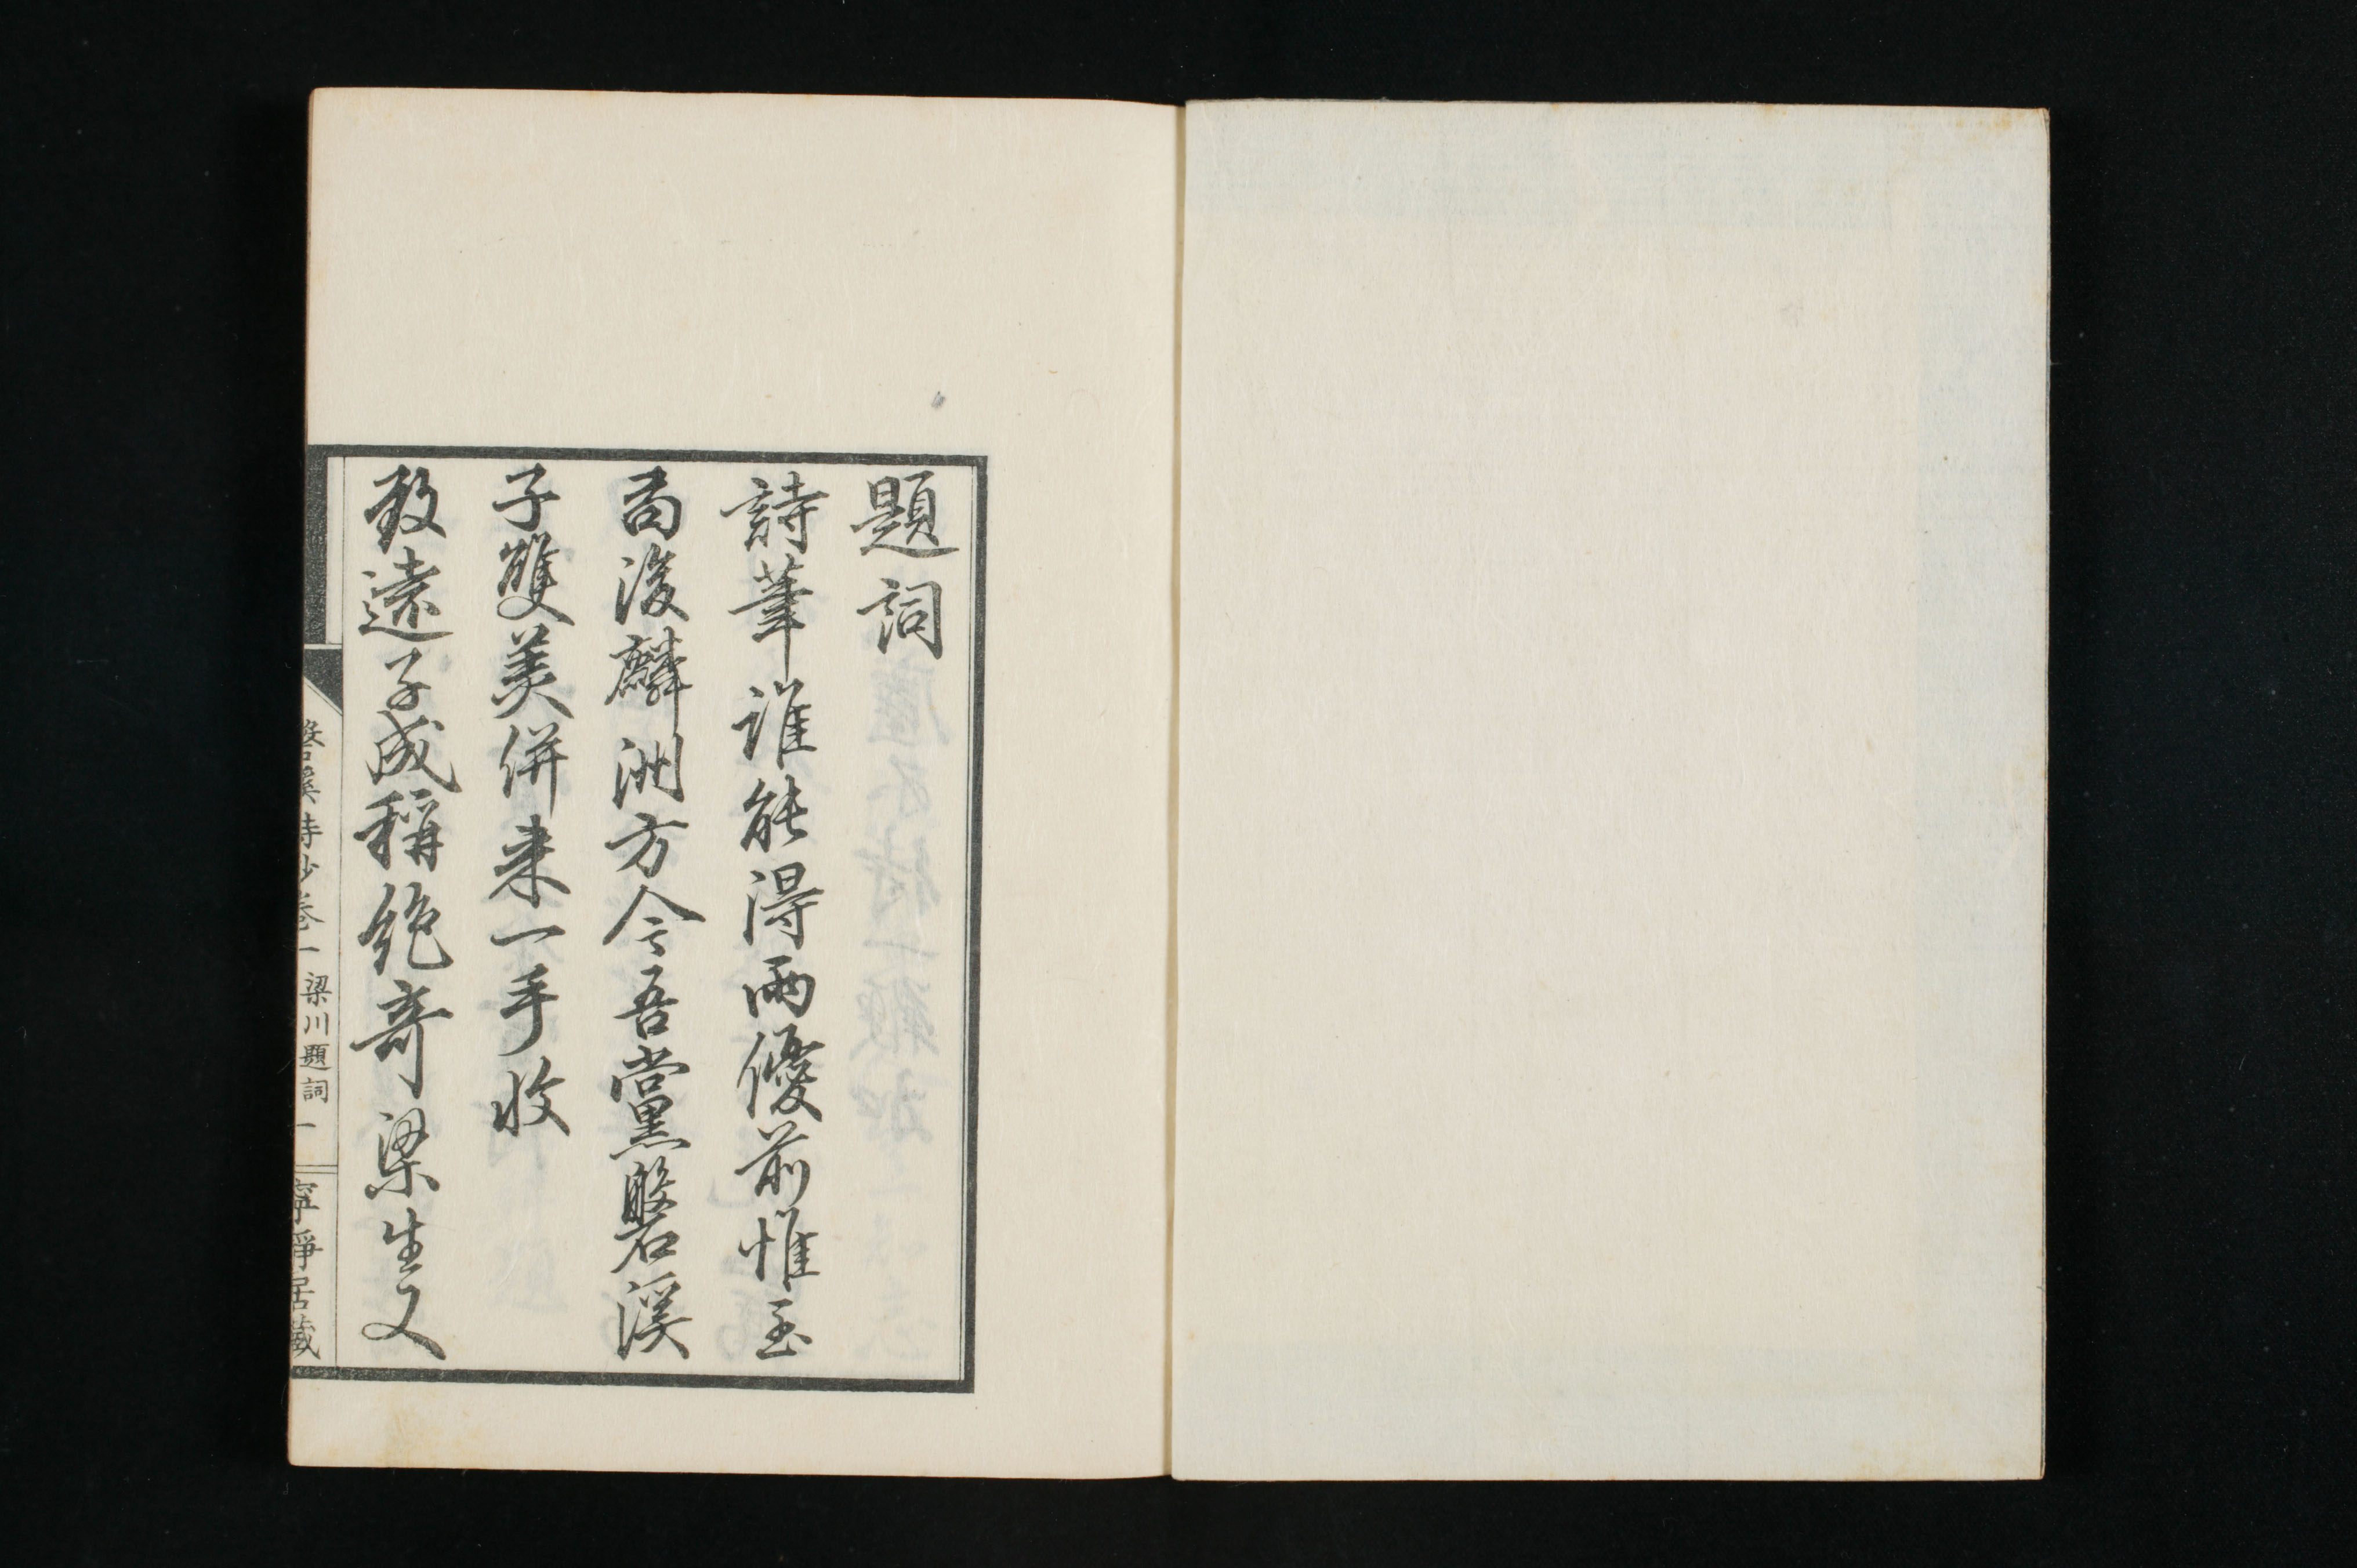 題詞
詩筆誰能得兩優前惟玉
局後麟洲方今吾黨磐溪
子雙美併来一手收
致遠子成稱絶奇梁生又
磐溪詩鈔卷一 梁川題詞 一 寧静居蔵